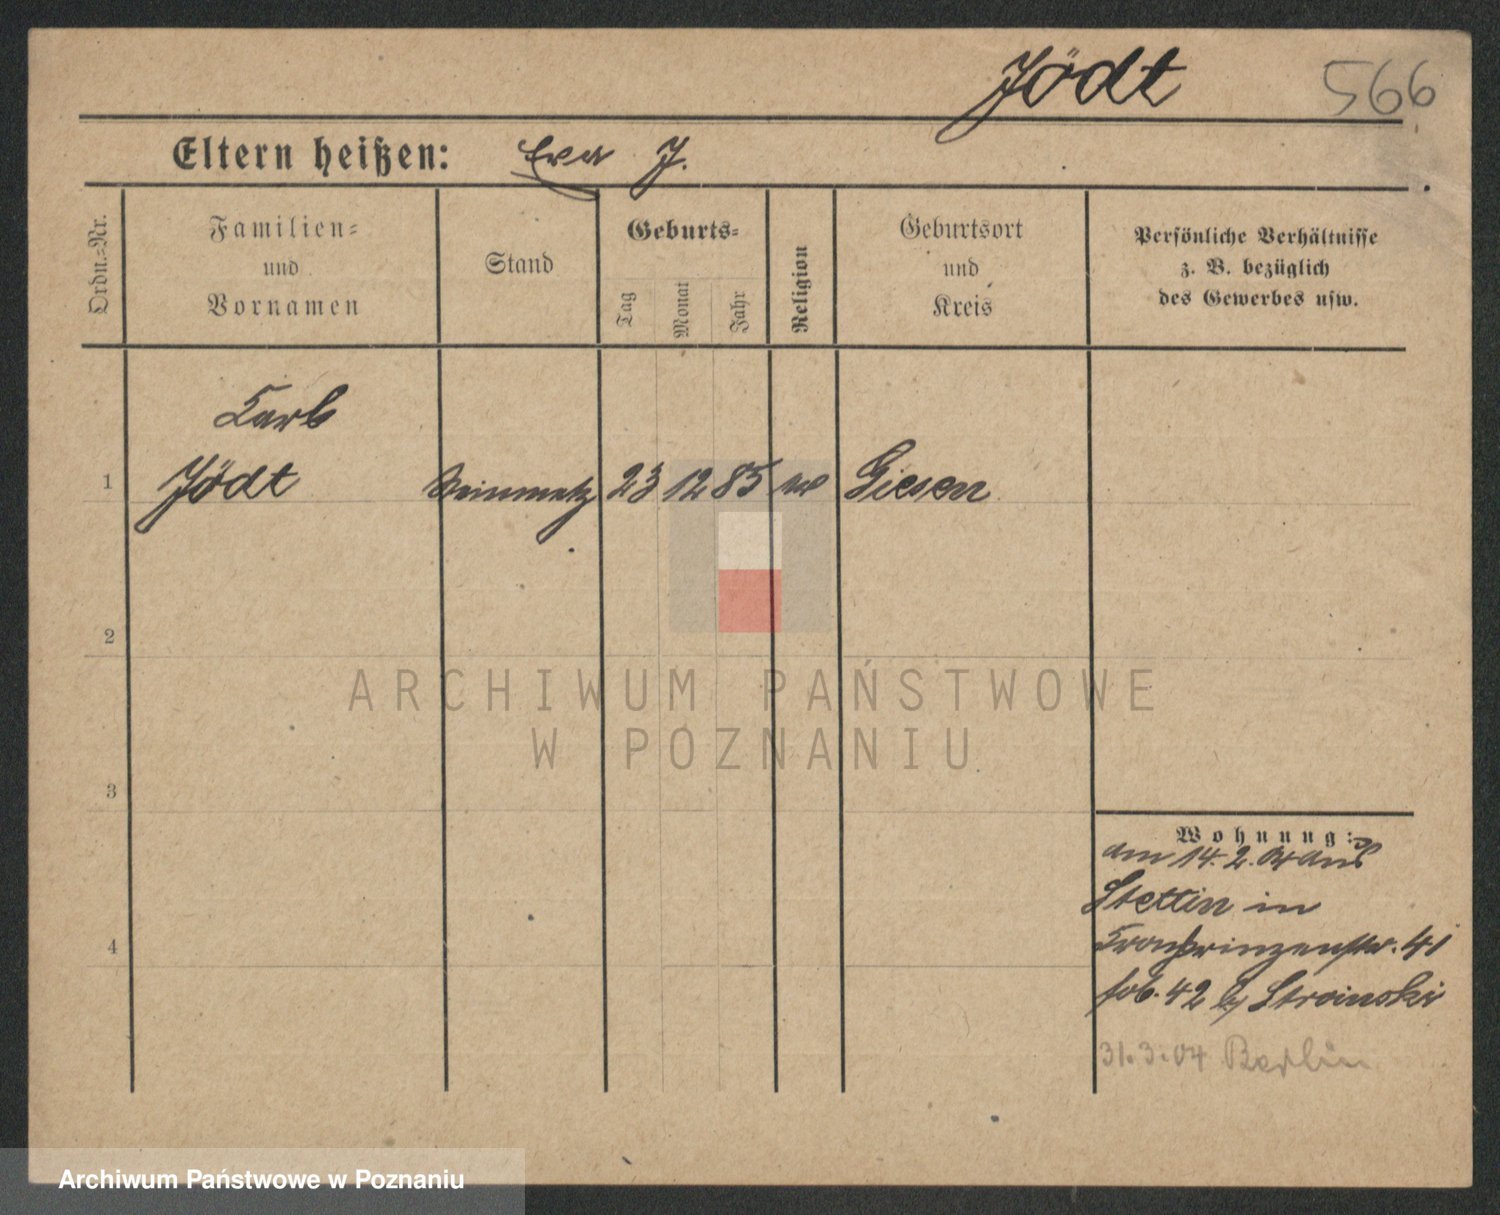 Jödt 566
Eltern heißen: Eva J.
Ordn.-Nr.
Familien-
und
Vornamen
Stand
Geburts-
Tag
Monat
Jahr
Religion
Geburtsort
und
Kreis
Persönliche Verhältnisse
z. B. bezüglich
des Gewerbes usw.
Carl
1 Jödt Steinmetz 23 12 85 Giesen
2
3
4
Wohnung:
am 14.2.04 aus
Stettin in
Kronprinzenstr. 41
42 b/ Stroinski
31.3.04 Berlin
ARCHIWUM PAŃSTWOWE
W POZNANIU
Archiwum Państwowe w Poznaniu